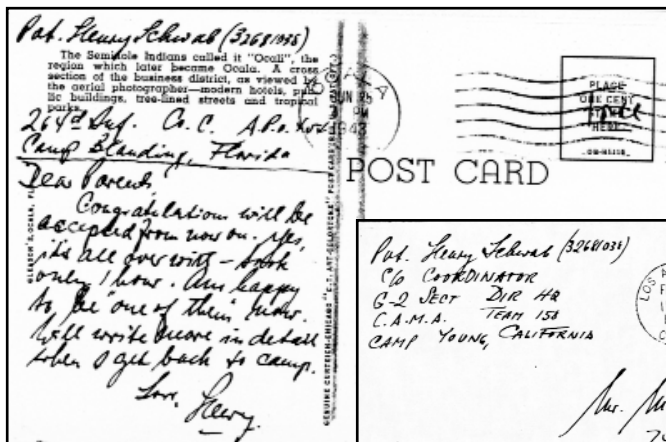 Pvt. Henry Schwab (32681036)
The Seminole Indians called it "Ocali", the
region which later became Ocala. A cross
section of the business district, as viewed by
the aerial photographer—modern hotels, pub-
lic buildings, tree-lined streets and tropical
parks.
264th Inf. Co. C. A.P.O.
Camp Blanding, Florida
Dear Parents,
Congratulations will be
accepted from now on. Yes,
it's all over with – took
only 1 hour. Am happy
to be "one of them" now.
Will write more in detail
when I get back to camp.
Love, Henry
OCALA
JUN 25
PM
1943
PLACE
ONE CENT
HERE
POST CARD
GENUINE CURTEICH-CHICAGO "C.T. ART-COLORTONE" POST CARD
Pvt. Henry Schwab (32681036)
C/O COORDINATOR
G-2 SECT DIR HQ
C.A.M.A. TEAM 150
CAMP YOUNG, CALIFORNIA
LOS A
Mr.